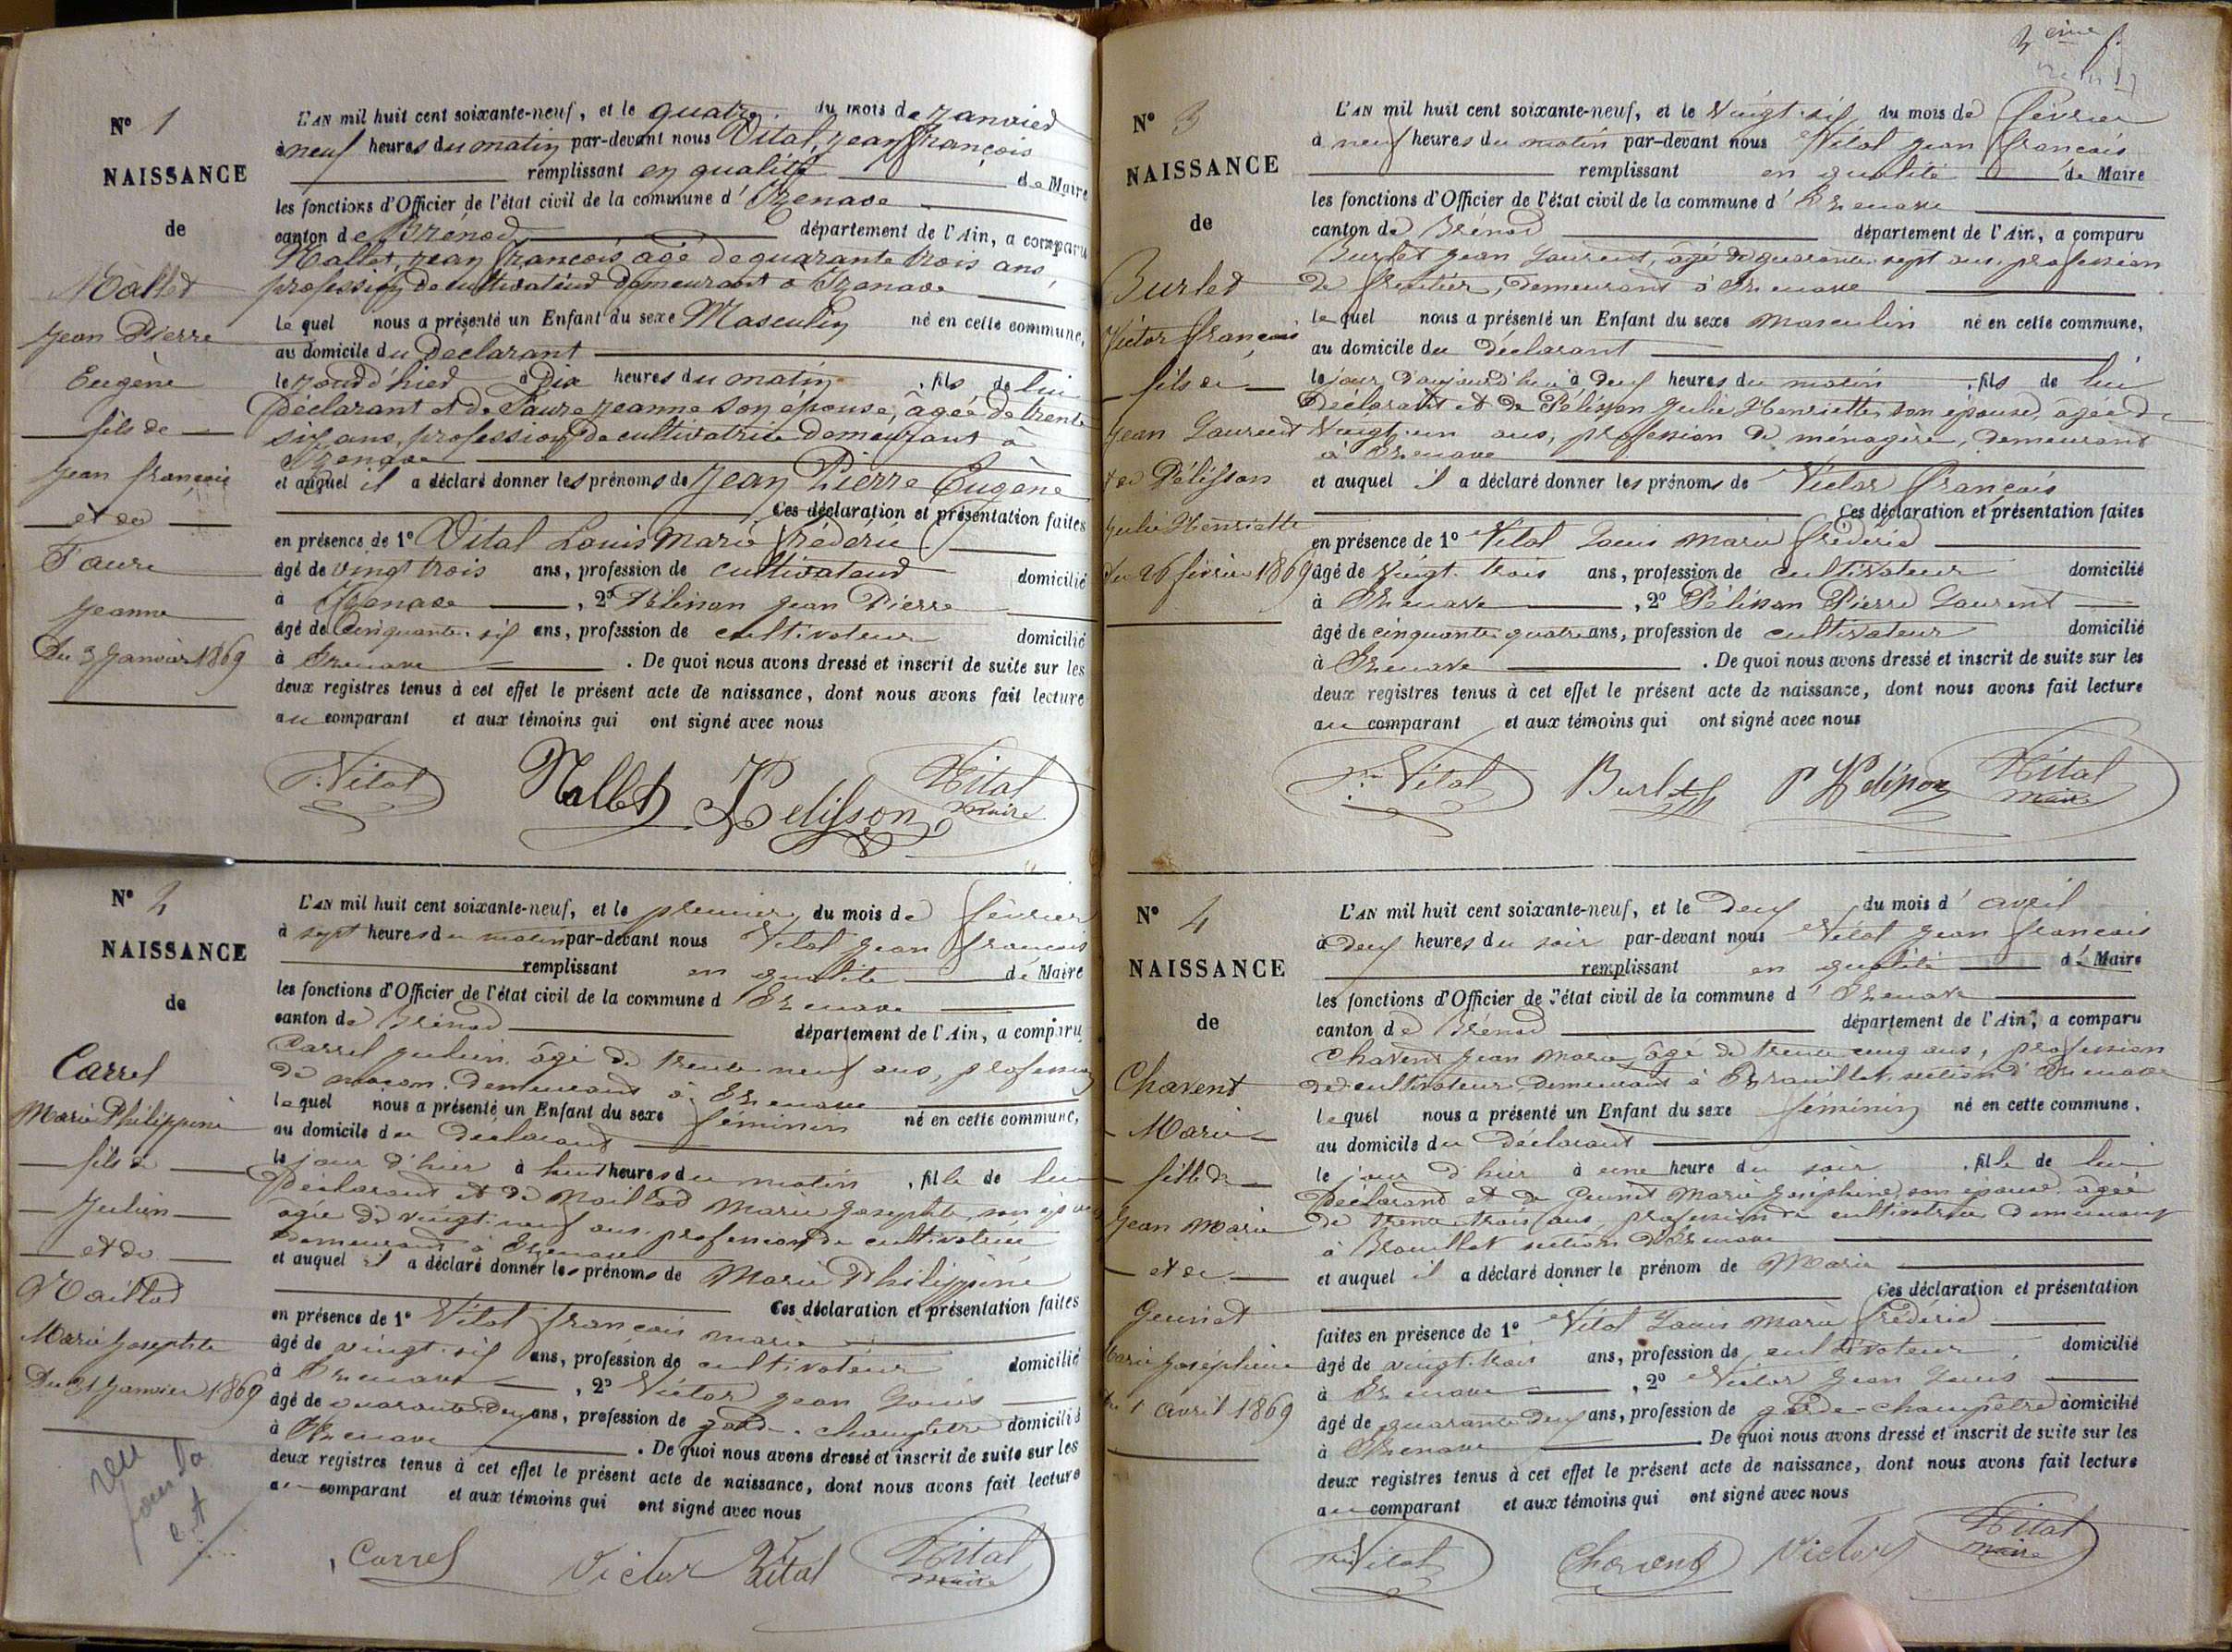 N° 1
NAISSANCE
de
Mallet
Jean Pierre
Eugène
fils de
Jean françois
et de
Faure
Jeanne
Du 3 Janvier 1869
L'AN mil huit cent soixante-neuf, et le quatre du mois de Janvier
à neuf heures du matin par-devant nous Vital, Jean François
remplissant en qualité de Maire
les fonctions d'Officier de l'état civil de la commune d'Izenave
canton de Brénod département de l'Ain, a comparu
Mallet, Jean François, âgé de quarante trois ans,
profession de cultivateur demeurant à Izenave
le quel nous a présenté un Enfant du sexe Masculin né en cette commune,
au domicile du Déclarant
le jour d'hier à Dix heures du matin, fils de lui
Déclarant et de Faure Jeanne son épouse, âgée de trente
six ans, profession de cultivatrice demeurant à
Izenave
et auquel il a déclaré donner les prénoms de Jean Pierre Eugène
Ces déclaration et présentation faites
en présence de 1° Vital Louis Marie Frédéric
âgé de vingt trois ans, profession de cultivateur domicilié
à Izenave, 2° Pélisson Jean Pierre
âgé de Cinquante-six ans, profession de cultivateur domicilié
à Izenave. De quoi nous avons dressé et inscrit de suite sur les
deux registres tenus à cet effet le présent acte de naissance, dont nous avons fait lecture
au comparant et aux témoins qui ont signé avec nous
Vital Mallet Pelisson Vital
maire
N° 2
NAISSANCE
de
Carrel
Marie Philippine
fils de
Julien
et de
Maillod
Marie Josephte
Du 31 Janvier 1869
L'AN mil huit cent soixante-neuf, et le premier du mois de février
à sept heures du matin par-devant nous Vital Jean françois
remplissant en qualité de Maire
les fonctions d'Officier de l'état civil de la commune d Izenave
canton de Brénod département de l'Ain, a comparu
Carrel Julien, âgé de trente neuf ans, profession
de maçon, demeurant à Izenave
le quel nous a présenté un Enfant du sexe féminin né en cette commune,
au domicile du Déclarant
le jour d'hier à huit heures du matin, fille de lui
Déclarant et de Maillod Marie Josephte, son épouse
âgée de vingt-neuf ans, profession de cultivatrice
demeurant à Izenave
et auquel il a déclaré donner les prénoms de Marie Philippine
Ces déclaration et présentation faites
en présence de 1° Vital françois marie
âgé de vingt-six ans, profession de cultivateur domicilié
à Izenave, 2° Victor Jean Louis
âgé de quarante-deux ans, profession de garde-champêtre domicilié
à Izenave. De quoi nous avons dressé et inscrit de suite sur les
deux registres tenus à cet effet le présent acte de naissance, dont nous avons fait lecture
au comparant et aux témoins qui ont signé avec nous
Carrel Victor Vital Vital
maire
N° 3
NAISSANCE
de
Burlet
Victor françois
fils de
Jean Laurent
et de Pélisson
Julie Henriette
Du 26 février 1869
L'AN mil huit cent soixante-neuf, et le vingt-six du mois de février
à neuf heures du matin par-devant nous Vital Jean françois
remplissant en qualité de Maire
les fonctions d'Officier de l'état civil de la commune d'Izenave
canton de Brénod département de l'Ain, a comparu
Burlet Jean Laurent, âgé de quarante-sept ans, profession
de rentier, demeurant à Izenave
le quel nous a présenté un Enfant du sexe masculin né en cette commune,
au domicile du déclarant
le jour d'aujourd'hui à deux heures du matin, fils de lui
Déclarant et de Pélisson Julie Henriette, son épouse, âgée de
vingt-un ans, profession de ménagère, demeurant
à Izenave
et auquel il a déclaré donner les prénoms de Victor françois
Ces déclaration et présentation faites
en présence de 1° Vital Louis marie frédéric
âgé de vingt-trois ans, profession de cultivateur domicilié
à Izenave, 2° Pélisson Pierre Laurent
âgé de cinquante-quatre ans, profession de cultivateur domicilié
à Izenave. De quoi nous avons dressé et inscrit de suite sur les
deux registres tenus à cet effet le présent acte de naissance, dont nous avons fait lecture
au comparant et aux témoins qui ont signé avec nous
Vital Burlet P Pelisson Vital
maire
N° 4
NAISSANCE
de
Chavent
Marie
fille de
Jean Marie
et de
Guinet
Marie Joséphine
Du 1 avril 1869
L'AN mil huit cent soixante-neuf, et le deux du mois d'avril
à deux heures du soir par-devant nous Vital Jean françois
remplissant en qualité de Maire
les fonctions d'Officier de l'état civil de la commune d'Izenave
canton de Brénod département de l'Ain, a comparu
Chavent Jean marie, âgé de trente cinq ans, profession
de cultivateur demeurant à Brouillat, section d'Izenave
le quel nous a présenté un Enfant du sexe féminin né en cette commune,
au domicile du Déclarant
le jour d'hier à une heure du soir, fille de lui
Déclarant et de Guinet Marie Joséphine, son épouse, âgée
de trente trois ans, profession de cultivatrice demeurant
à Brouillat section d'Izenave
et auquel il a déclaré donner le prénom de Marie
Ces déclaration et présentation
faites en présence de 1° Vital Louis Marie frédéric
âgé de vingt-trois ans, profession de cultivateur, domicilié
à Izenave, 2° Victor Jean Louis
âgé de quarante deux ans, profession de garde-champêtre domicilié
à Izenave. De quoi nous avons dressé et inscrit de suite sur les
deux registres tenus à cet effet le présent acte de naissance, dont nous avons fait lecture
au comparant et aux témoins qui ont signé avec nous
Vital Chavent Victor Vital
maire